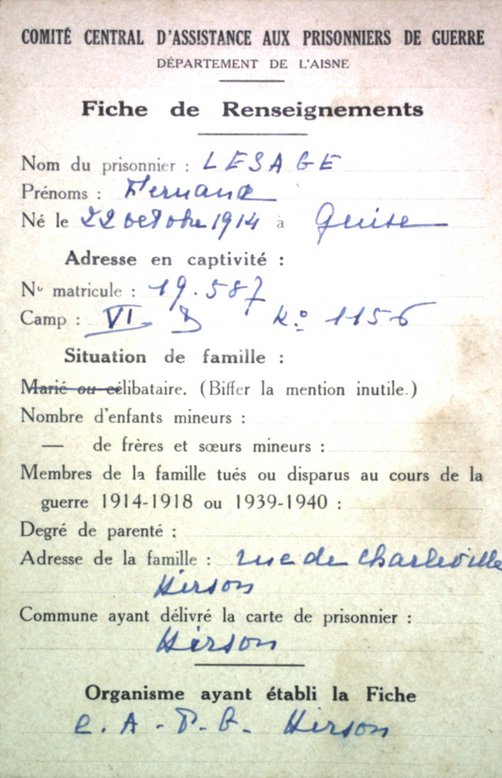 COMITÉ CENTRAL D'ASSISTANCE AUX PRISONNIERS DE GUERRE
DÉPARTEMENT DE L'AISNE
Fiche de Renseignements
Nom du prisonnier : LESAGE
Prénoms : Fernand
Né le 22 octobre 1914 à Guise
Adresse en captivité :
No matricule : 19.587
Camp : VI D K.o 1156
Situation de famille :
Marié ou célibataire. (Biffer la mention inutile.)
Nombre d'enfants mineurs :
— de frères et sœurs mineurs :
Membres de la famille tués ou disparus au cours de la
guerre 1914-1918 ou 1939-1940 :
Degré de parenté :
Adresse de la famille : rue de Charleville
Hirson
Commune ayant délivré la carte de prisonnier :
Hirson
Organisme ayant établi la Fiche
C. A - P. G. Hirson